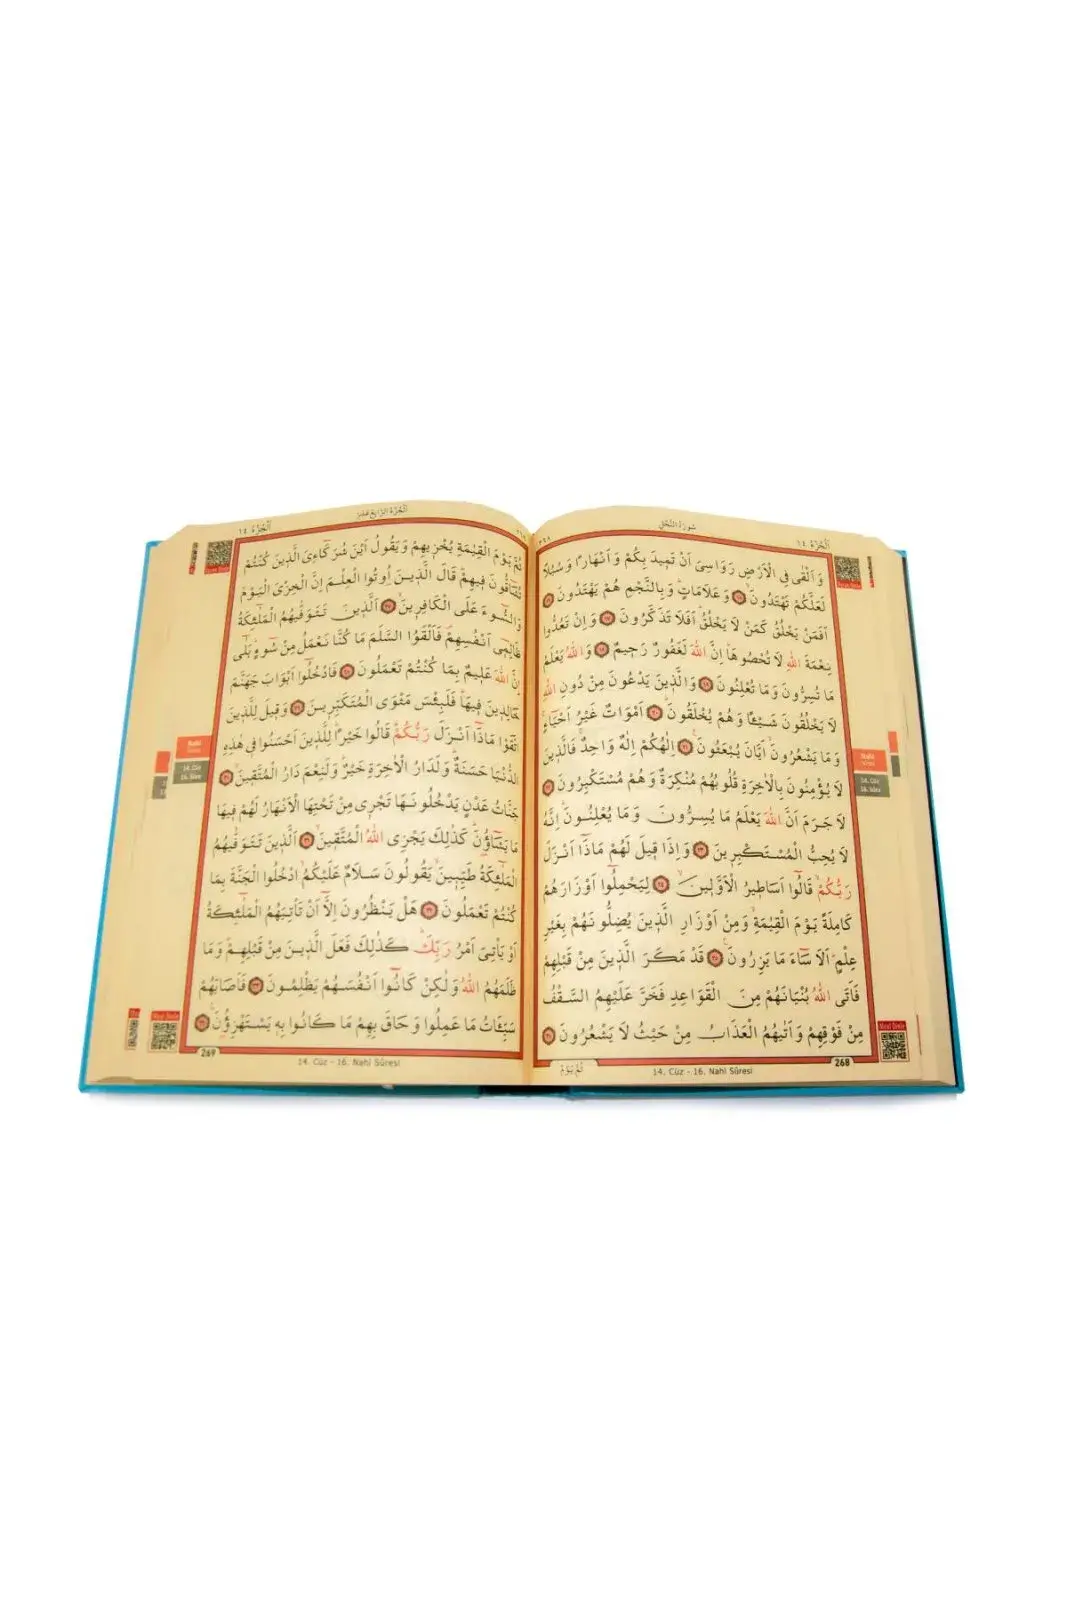 سُورَةُ النَّحْلِ
اَلْجُزْءُ ١٤
وَاَلْقٰى فِي الْاَرْضِ رَوَاسِيَ اَنْ تَمٖيدَ بِكُمْ وَاَنْهَاراً وَسُبُلاً
لَعَلَّكُمْ تَهْتَدُونَۙ ﴿١٥﴾ وَعَلَامَاتٍؕ وَبِالنَّجْمِ هُمْ يَهْتَدُونَ ﴿١٦﴾
اَفَمَنْ يَخْلُقُ كَمَنْ لَا يَخْلُقُؕ اَفَلَا تَذَكَّرُونَ ﴿١٧﴾ وَاِنْ تَعُدُّوا
نِعْمَةَ اللّٰهِ لَا تُحْصُوهَاؕ اِنَّ اللّٰهَ لَغَفُورٌ رَحٖيمٌ ﴿١٨﴾ وَاللّٰهُ يَعْلَمُ
مَا تُسِرُّونَ وَمَا تُعْلِنُونَ ﴿١٩﴾ وَالَّذٖينَ يَدْعُونَ مِنْ دُونِ اللّٰهِ
لَا يَخْلُقُونَ شَيْـٔاً وَهُمْ يُخْلَقُونَؕ ﴿٢٠﴾ اَمْوَاتٌ غَيْرُ اَحْيَٓاءٍۚ
وَمَا يَشْعُرُونَۙ اَيَّانَ يُبْعَثُونَ۟ ﴿٢١﴾ اِلٰهُكُمْ اِلٰهٌ وَاحِدٌۚ فَالَّذٖينَ
لَا يُؤْمِنُونَ بِالْاٰخِرَةِ قُلُوبُهُمْ مُنْكِرَةٌ وَهُمْ مُسْتَكْبِرُونَ ﴿٢٢﴾
لَا جَرَمَ اَنَّ اللّٰهَ يَعْلَمُ مَا يُسِرُّونَ وَمَا يُعْلِنُونَؕ اِنَّهُ
لَا يُحِبُّ الْمُسْتَكْبِرٖينَ ﴿٢٣﴾ وَاِذَا قٖيلَ لَهُمْ مَاذَٓا اَنْزَلَ
رَبُّكُمْۙ قَالُٓوا اَسَاطٖيرُ الْاَوَّلٖينَۙ ﴿٢٤﴾ لِيَحْمِلُٓوا اَوْزَارَهُمْ
كَامِلَةً يَوْمَ الْقِيٰمَةِۙ وَمِنْ اَوْزَارِ الَّذٖينَ يُضِلُّونَهُمْ بِغَيْرِ
عِلْمٍؕ اَلَا سَٓاءَ مَا يَزِرُونَ۟ ﴿٢٥﴾ قَدْ مَكَرَ الَّذٖينَ مِنْ قَبْلِهِمْ
فَاَتَى اللّٰهُ بُنْيَانَهُمْ مِنَ الْقَوَاعِدِ فَخَرَّ عَلَيْهِمُ السَّقْفُ
مِنْ فَوْقِهِمْ وَاَتٰيهُمُ الْعَذَابُ مِنْ حَيْثُ لَا يَشْعُرُونَ ﴿٢٦﴾
268
ثُمَّ يَوْمَ
14. Cüz - 16. Nahl Sûresi
Nahl
Sûresi
14. Cüz
16. Sûre
Meal Dinle
اَلْجُزْءُ الرَّابِعُ عَشَرَ
اَلْجُزْءُ ١٤
ثُمَّ يَوْمَ الْقِيٰمَةِ يُخْزٖيهِمْ وَيَقُولُ اَيْنَ شُرَكَٓاءِيَ الَّذٖينَ كُنْتُمْ
تُشَٓاقُّونَ فٖيهِمْؕ قَالَ الَّذٖينَ اُوتُوا الْعِلْمَ اِنَّ الْخِزْيَ الْيَوْمَ
وَالسُّٓوءَ عَلَى الْكَافِرٖينَۙ ﴿٢٧﴾ اَلَّذٖينَ تَتَوَفّٰيهُمُ الْمَلٰٓئِكَةُ
ظَالِمٖٓي اَنْفُسِهِمْࣕ فَاَلْقَوُا السَّلَمَ مَا كُنَّا نَعْمَلُ مِنْ سُٓوءٍؕ بَلٰٓى
اِنَّ اللّٰهَ عَلٖيمٌ بِمَا كُنْتُمْ تَعْمَلُونَ ﴿٢٨﴾ فَادْخُلُٓوا اَبْوَابَ جَهَنَّمَ
خَالِدٖينَ فٖيهَاؕ فَلَبِئْسَ مَثْوَى الْمُتَكَبِّرٖينَ ﴿٢٩﴾ وَقٖيلَ لِلَّذٖينَ
اتَّقَوْا مَاذَٓا اَنْزَلَ رَبُّكُمْؕ قَالُوا خَيْراًؕ لِلَّذٖينَ اَحْسَنُوا فٖي هٰذِهِ
الدُّنْيَا حَسَنَةٌؕ وَلَدَارُ الْاٰخِرَةِ خَيْرٌؕ وَلَنِعْمَ دَارُ الْمُتَّقٖينَۙ ﴿٣٠﴾
جَنَّاتُ عَدْنٍ يَدْخُلُونَهَا تَجْرٖي مِنْ تَحْتِهَا الْاَنْهَارُ لَهُمْ فٖيهَا
مَا يَشَٓاؤُ۫نَؕ كَذٰلِكَ يَجْزِي اللّٰهُ الْمُتَّقٖينَۙ ﴿٣١﴾ اَلَّذٖينَ تَتَوَفّٰيهُمُ
الْمَلٰٓئِكَةُ طَيِّبٖينَۙ يَقُولُونَ سَلَامٌ عَلَيْكُمُۙ ادْخُلُوا الْجَنَّةَ بِمَا
كُنْتُمْ تَعْمَلُونَ ﴿٣٢﴾ هَلْ يَنْظُرُونَ اِلَّٓا اَنْ تَأْتِيَهُمُ الْمَلٰٓئِكَةُ
اَوْ يَأْتِيَ اَمْرُ رَبِّكَؕ كَذٰلِكَ فَعَلَ الَّذٖينَ مِنْ قَبْلِهِمْؕ وَمَا
ظَلَمَهُمُ اللّٰهُ وَلٰكِنْ كَانُٓوا اَنْفُسَهُمْ يَظْلِمُونَ ﴿٣٣﴾ فَاَصَابَهُمْ
سَيِّـَٔاتُ مَا عَمِلُوا وَحَاقَ بِهِمْ مَا كَانُوا بِهٖ يَسْتَهْزِؤُ۫نَ۟ ﴿٣٤﴾
269
14. Cüz - 16. Nahl Sûresi
Nahl
Sûresi
14. Cüz
16. Sûre
Meal Dinle